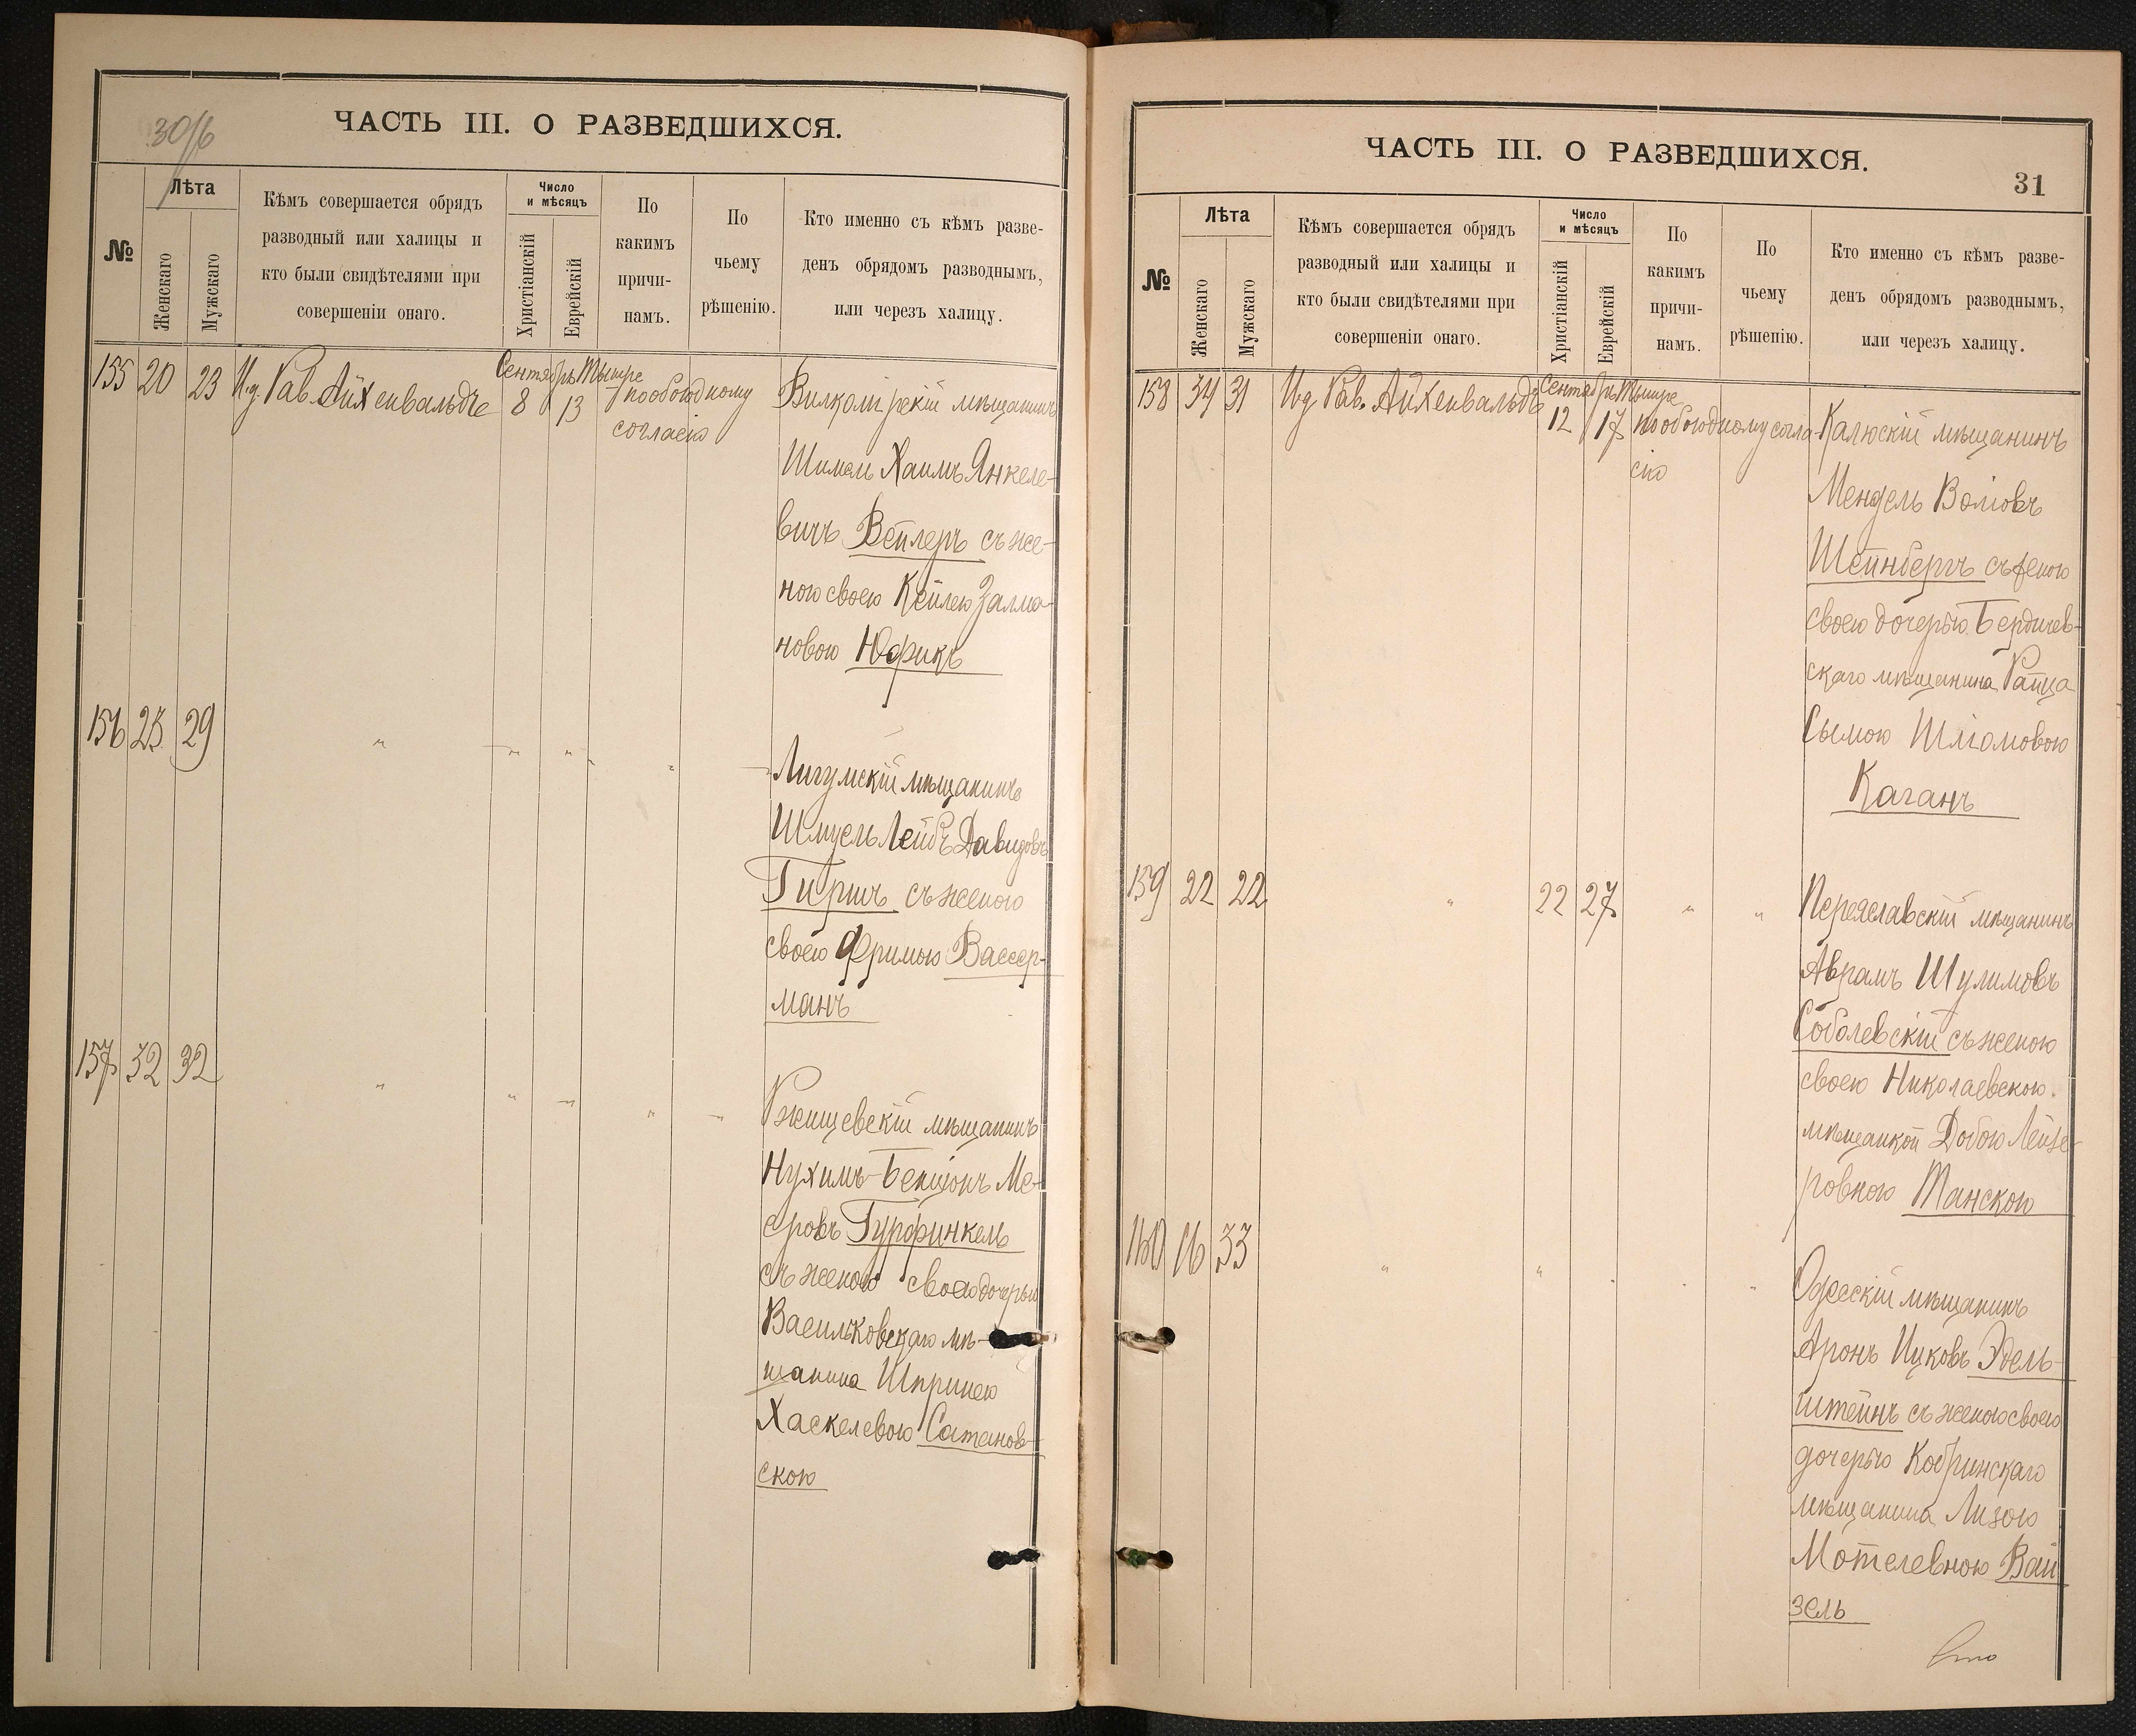 30/б
ЧАСТЬ III. О РАЗВЕДШИХСЯ.
№
Лѣта
Женскаго
Мужскаго
Кѣмъ совершается обрядъ
разводный или халицы и
кто были свидѣтелями при
совершеніи онаго.
Число
и мѣсяцъ
Христіанскій
Еврейскій
По
какимъ
причи-
намъ.
По
чьему
рѣшенію.
Кто именно съ кѣмъ разве-
денъ обрядомъ разводнымъ,
или черезъ халицу.
155 20 23 И.д. Рав. Айхенвальдъ
Сентябрь Тишре
8 13
по обоюдному
согласію
Вилкомірскій мѣщанинъ
Шимель Хаимъ Янкеле-
вичъ Вейлеръ съ же-
ною своею Кейлею Залма-
новою Юфикъ
156 25 29 " " " " "
Лигумскій мѣщанинъ
Шмуель Лейбъ Давидовъ
Гиршъ съ женою
своею Фримою Вассер-
манъ
157 32 32 " " " " "
Ржищевскій мѣщанинъ
Нухимъ-Бенціонъ Ме-
еровъ Гурфинкель
съ женою своею дочерью
Васильковскаго мѣ-
щанина Шпринею
Хаскелевою Сатанов-
скою
ЧАСТЬ III. О РАЗВЕДШИХСЯ.
31
№
Лѣта
Женскаго
Мужскаго
Кѣмъ совершается обрядъ
разводный или халицы и
кто были свидѣтелями при
совершеніи онаго.
Число
и мѣсяцъ
Христіанскій
Еврейскій
По
какимъ
причи-
намъ.
По
чьему
рѣшенію.
Кто именно съ кѣмъ разве-
денъ обрядомъ разводнымъ,
или черезъ халицу.
158 34 31 И.д. Рав. Айхенвальдъ
Сентябрь Тишре
12 17
по обоюдному согла-
сію
Калюскій мѣщанинъ
Мендель Воліовъ
Шейнбергъ съ женою
своею дочерью Бердичев-
скаго мѣщанина Раица
Сымою Шліомовою
Каганъ
159 22 22 " 22 27 " "
Переяславскій мѣщанинъ
Аврамъ Шулимовъ
Соболевскій съ женою
своею Николаевскою
мѣщанкой Добою Лейзе-
ровною Танскою
160 26 33 " " " " "
Одесскій мѣщанинъ
Аронъ Ицковъ Эдель-
штейнъ съ женою своею
дочерью Кобринскаго
мѣщанина Лизою
Мотелевною Вай
зель